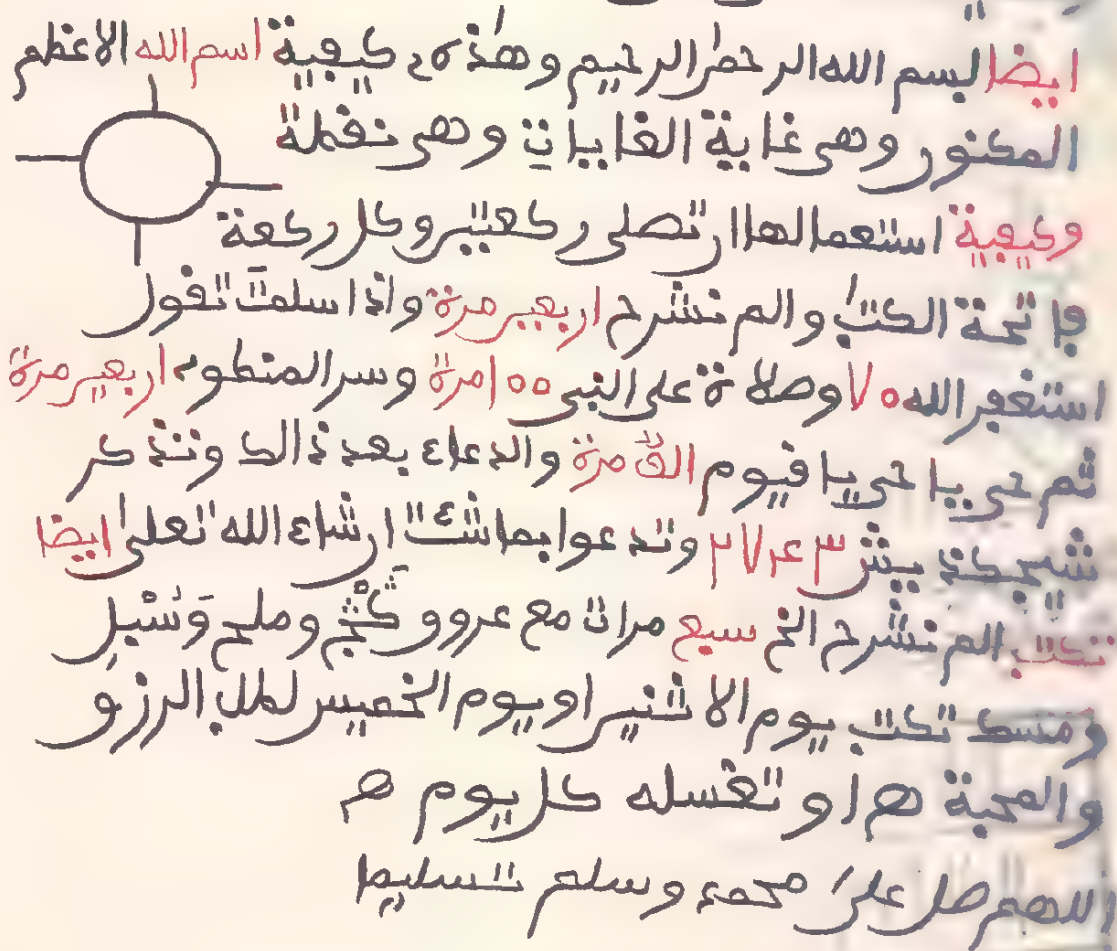 ايضا لبسم الله الرحمن الرحيم وهذه كيفية اسم الله الاعظم
المكنون وهى غاية الغايات وهى نقطة
وكيفية استعمالها ان تصلى ركعتين وكل ركعة
فاتحة الكتب والم نشرح اربعين مرة واذا سلمت تقول
استغفر الله ٧٠ وصلاة على النبى ١٠٠ مرة وسر المنطوم اربعين مرة
ثم حى يا حى يا قيوم الف مرة والدعاء بعد ذالك وتذكر
وتدعوا بما شئت ان شاء الله تعلى ايضا
تكتب الم نشرح الخ سبع مرات مع عروق وملح وسنبل
ومسك تكتب يوم الاثنين او يوم الخميس لطلب الرزق
والمحبة هـ او تغسله كل يوم هـ
اللهم صل على محمد وسلم تسليما